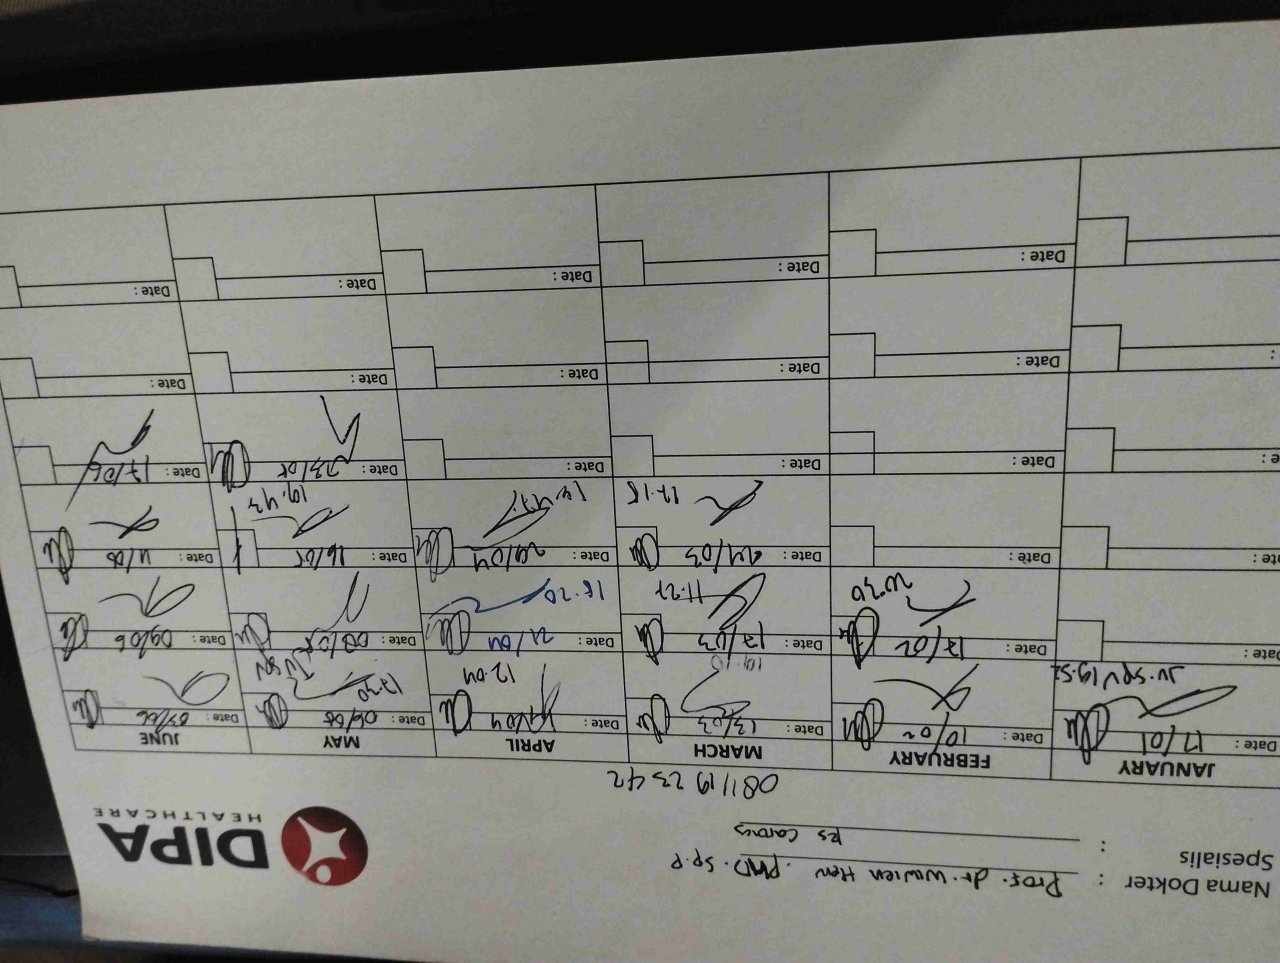 Nama Dokter : Prof. dr. Wiwien Heru. PhD. Sp.P
Spesialis : RS Carolus
DIPA
HEALTHCARE
0811 19 23 42
JANUARY FEBRUARY MARCH APRIL MAY JUNE
Date : 17/01 Date : 10/02 Date : 13/03 Date : /04 Date : 06/05 Date : /06
JV. SPV 19.52 19.15 12.04 17.30 JV SPV
Date : Date : 17/02 Date : 17/03 Date : 21/04 Date : 08/05 Date : 09/06
20.30 11.27 18.20
Date : Date : Date : 24/03 Date : 29/04 Date : 16/05 Date : 11/06
17.15 19.43
Date : Date : Date : Date : Date : 23/05 Date : 17/06
Date : Date : Date : Date : Date :
Date : Date : Date : Date : Date :